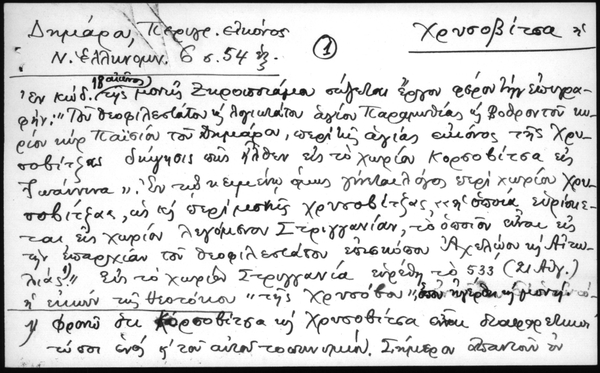 Δημάρα, Περιγρ. εικόνος Χρυσοβίτσα ἡ
Ν. Ἑλληνομν. 6 σ. 54 ἑξ. 1
18 αἰῶνος
Ἐν κώδ. τῆς μονῆς Ξηροποτάμου σῴζεται ἔργον φέρον τὴν ἐπιγρα-
φήν: "Τοῦ θεοφιλεστάτου κ λογιωτάτου ἁγίου Παραμυθίας κ Βοθροντοῦ κυ-
ρίου κὺρ Παϊσίου τοῦ Δημάρα, περὶ τῆς ἁγίας εἰκόνος τῆς Χρυ-
σοβίτζας διήγησις πῶς ἦλθεν εἰς τὸ χωρίον Κορσοβίτσα εἰς
Ἰωάννινα". Ἐν τῷ κειμένῳ ὅμως γίνεται λόγος περὶ χωρίου Χρυ-
σοβίτζας, ὡς κ περὶ μονῆς Χρυσοβίτζας, "ἡ ὁποία εὑρίσκε-
ται εἰς χωρίον λεγόμενον Στριγγανίαν, τὸ ὁποῖον εἶναι εἰς
τὴν ἐπαρχίαν τοῦ θεοφιλεστάτου ἐπισκόπου Ἀχελώου κ Αἰτω-
λίας". Εἰς τὸ χωρίον Στριγγανία εὑρέθη τὸ 533 (21 Αὐγ.)
ἡ εἰκὼν τῆς Θεοτόκου "τῆς Χρυσόβου",
1) Φρονῶ ὅτι Κορσοβίτσα κ Χρυσοβίτσα εἶναι διαφορετικοὶ
τύποι ἑνὸς κ τοῦ αὐτοῦ τοπωνυμίου. Σήμερον ἀπαντοῦν